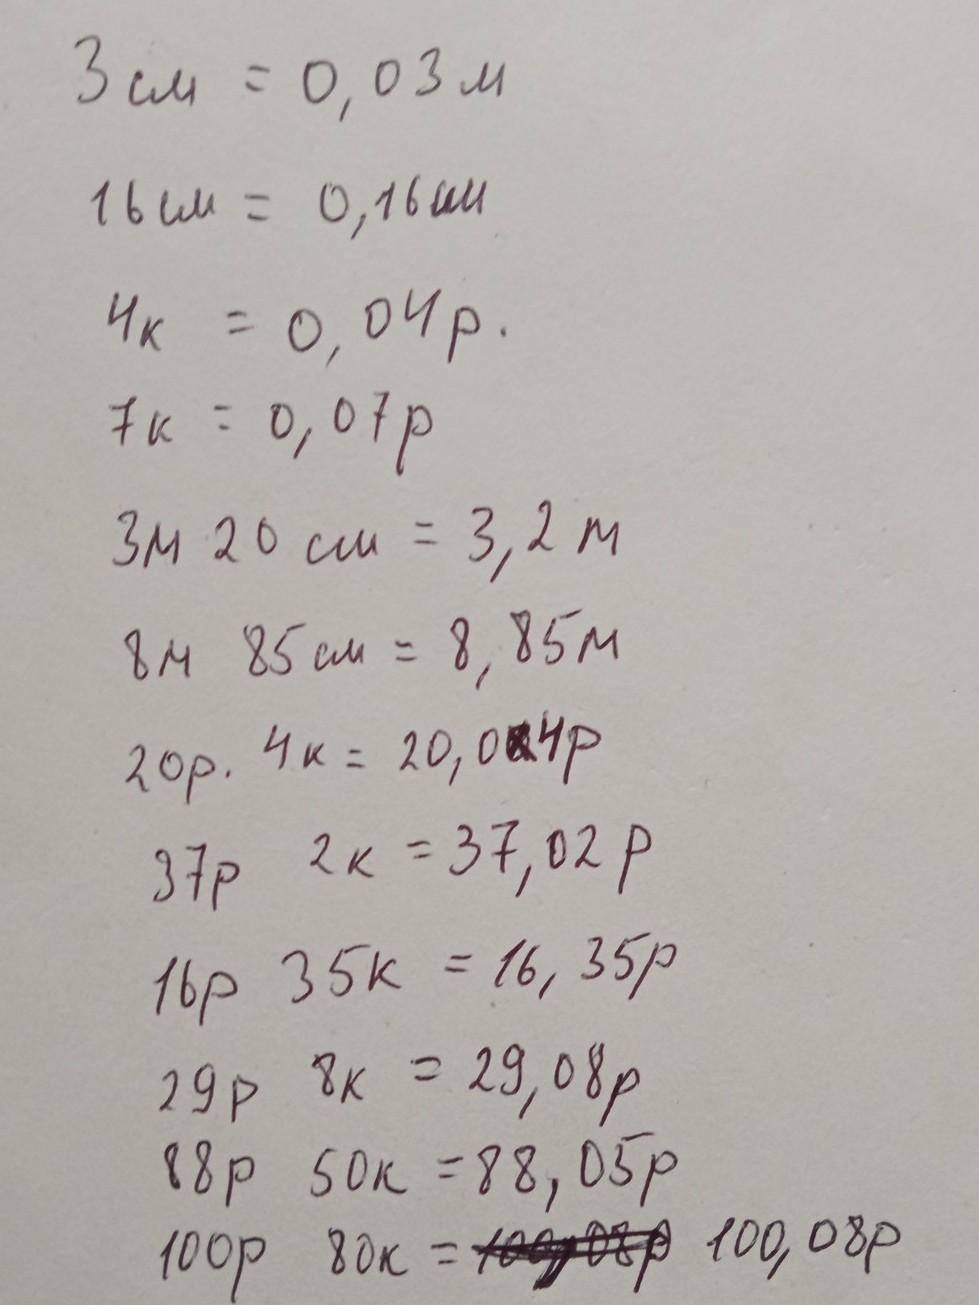 3 см = 0,03 м
16 см = 0,16 см
4к = 0,04 р.
7к = 0,07р
3м 20 см = 3,2 м
8м 85 см = 8,85м
20р. 4к = 20,04р
37р 2к = 37,02 р
16р 35к = 16,35р
29р 8к = 29,08р
88р 50к = 88,05р
100р 80к = 100,08р 100,08р